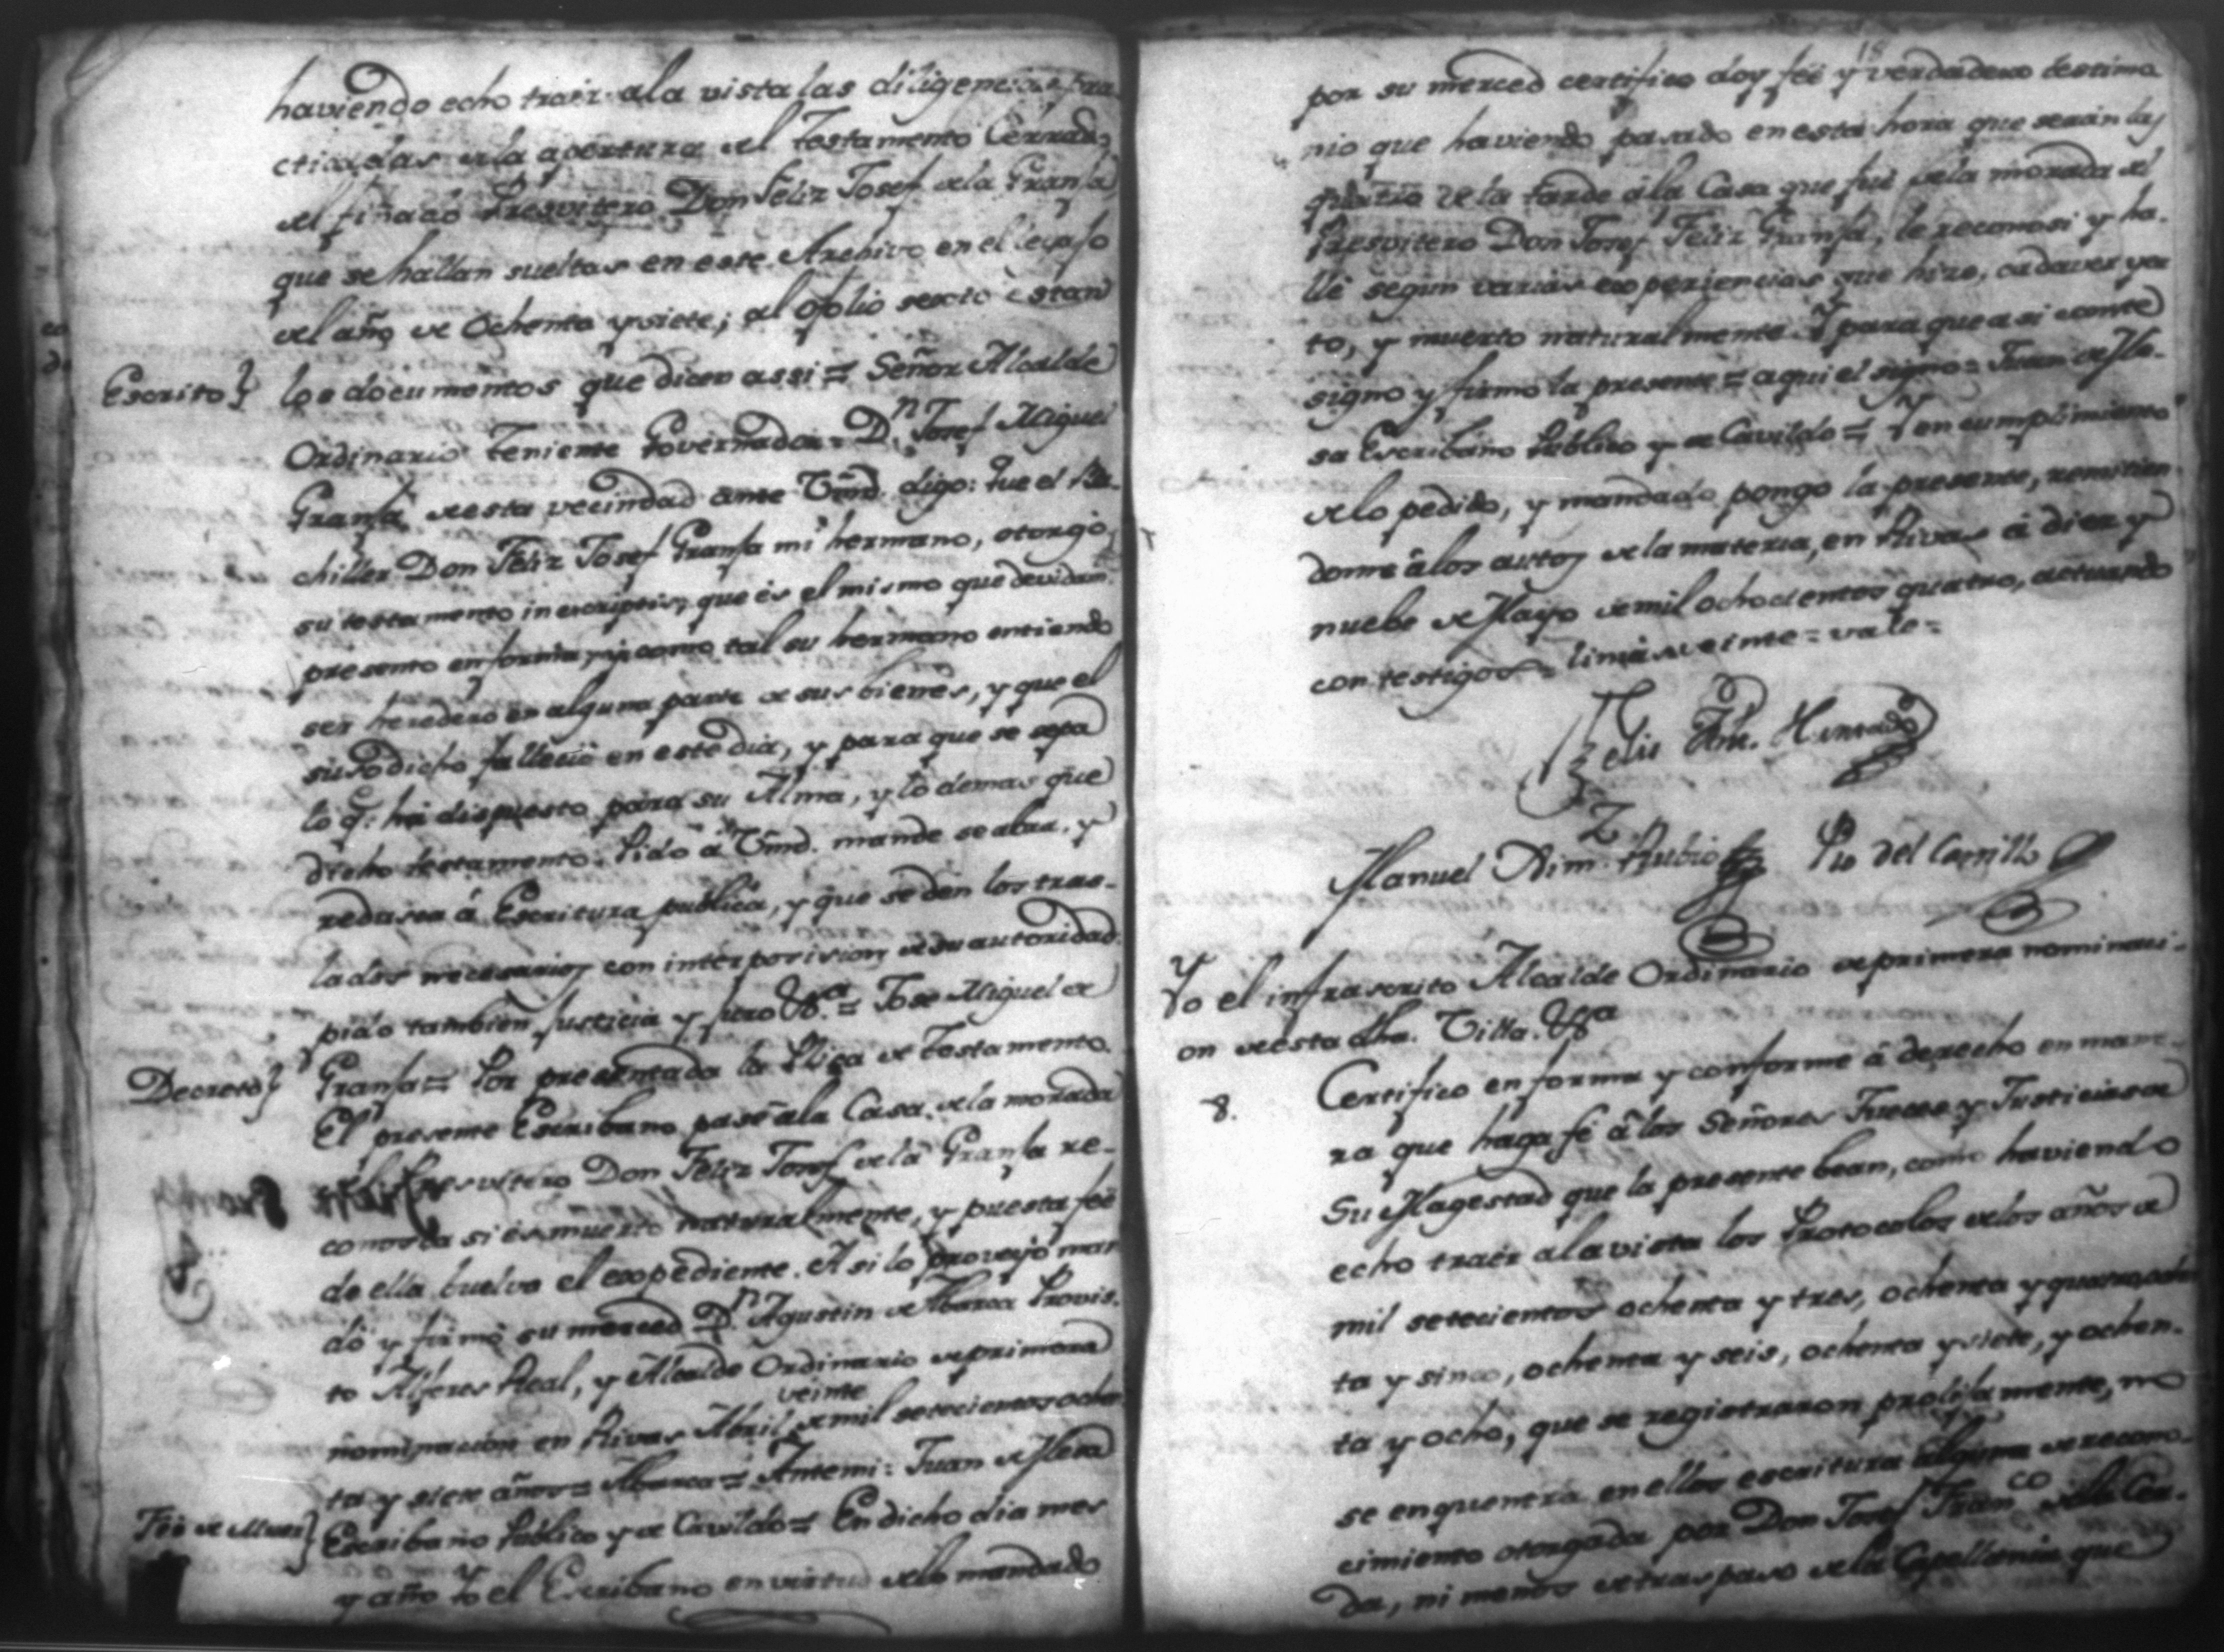 haviendo echo traer ala vista las diligencias pra
cticadas dela apertura del Testamento Cerrado
del finado Presvitero Don Feliz Josef dela Granja
que se hallan sueltas en este Archivo en el legajo
del año de Ochenta y siete; al folio sexto estan
Escrito} los documentos que dicen assi = Señor Alcalde
Ordinario Teniente Governador = Dn. Josef Miguel
Granja de esta vecindad ante Vmd. digo: Que el Ba-
chiller Don Feliz Josef Granja mi hermano, otorgó
su testamento in escriptis, que és el mismo que devidam.
presento en forma, y como tal su hermano entiendo
ser heredero en alguna parte de sus bienes, y que el
susodicho falleció en este dia, y para que se sepa
lo q. há dispuesto para su Alma, y lo demas que
dicho testamento. Pido á Vmd. mande se abra, y
redusca á Escritura publica, y que se den los tras-
lados necesarios con interposision de su autoridad
pido tambien Justicia y juro &a. = Jose Miguel de
Decreto} Granja = Por presentada la Plica de Testamento.
El presente Escribano pase ala Casa dela morada
del Presvitero Don Feliz Josef dela Granja re-
conosca si és muerto naturalmente, y puesta feé
de ella buelva el expediente. Asi lo proveyó man
dó y firmó su merced Dn. Agustin de Abarca Provis.
to Alferes Real, y Alcalde Ordinario de primera
nominacion en Rivas Abril veinte de mil setecientos ochen
ta y siete años = Abarca = Antemi: Juan de Mesa
Feé de Muer} Escribano Publico y de Cavildo = En dicho dia mes
y año Yo el Escribano en virtud delo mandado
18
por su merced certifico doy feé y verdadero testimo
nio que haviendo pasado en esta hora que serán las
quatro de la tarde á la Casa que fué dela morada del
Presvitero Don Josef Feliz Granja, le reconosi y ha-
llé segun varias experiencias que hize, cadaver yer
to, y muerto naturalmente. Y para que asi conste
signo y firmo la presente = aqui el signo = Juan de Me-
sa Escribano Publico y de Cavildo = Y en cumplimiento
delo pedido, y mandado pongo la presente, remitien
dome álos autos dela materia, en Rivas á diez y
nuebe de Mayo de mil ochocientos quatro, actuando
con testigos = veinte = vale =
Felis Hurtado
Manuel Rubio Pio del Castillo
Yo el infrascrito Alcalde Ordinario de primera nominaci-
on de esta dha. Villa. &a
8. Certifico en forma y conforme á derecho en mane-
ra que haga fé á los Señores Jueces y Justicias de
Su Magestad que la presente bean, como haviendo
echo traer ala vista los Protocolos delos años de
mil setecientos ochenta y tres, ochenta y quatro, ochen
ta y sinco, ochenta y seis, ochenta y siete, y ochen-
ta y ocho, que se registraron prolijamente, no
se enquentra en ellos escritura alguna de recono-
cimiento otorgada por Don Josef Franco. dela Cer-
da, ni menos de traspaso dela Capellania que